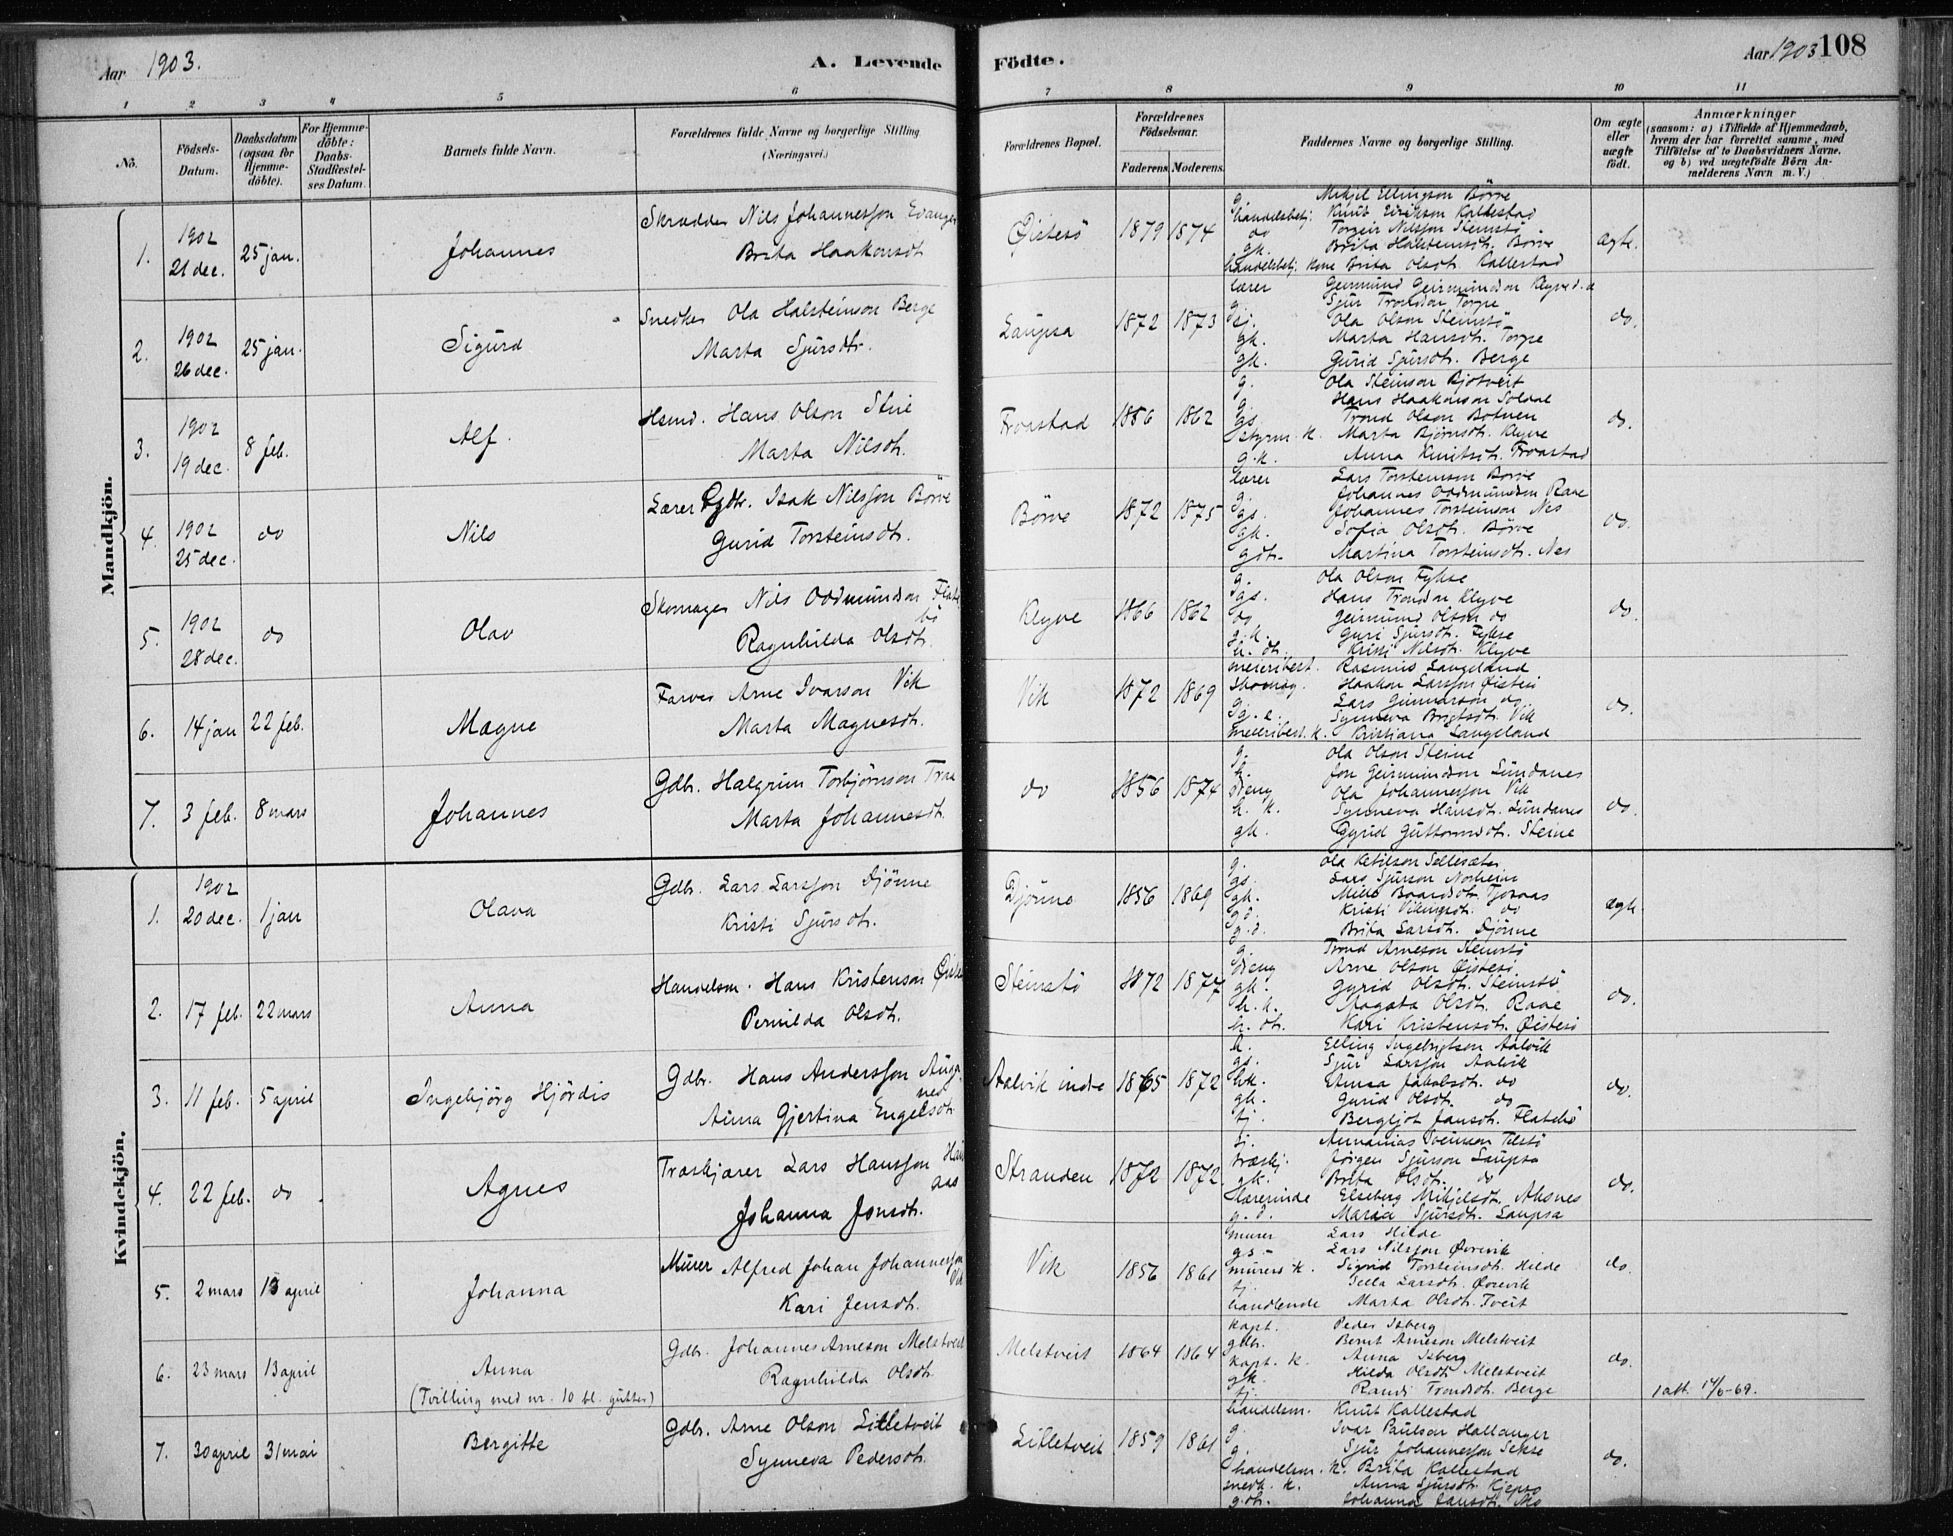 Aar 1903.
A. Levende
Födte.
Aar 1903 108
1 2 3 4 5 6 7 8 9 10 11
No.
Födsels-
Datum.
Daabsdatum
(ogsaa for
Hjemme-
döbte).
For Hjemme-
döbte:
Daabs-
Stadfæstel-
ses Datum.
Barnets fulde Navn.
Forældrenes fulde Navne og borgerlige Stilling
(Næringsvei.)
Forældrenes Bopæl.
Forældrenes
Födselsaar.
Faderens Moderens.
Faddernes Navne og borgerlige Stilling.
Om ægte
eller
uægte
födt.
Anmærkninger
(saasom: a) i Tilfælde af Hjemmedaab,
hvem der har forrettet samme, med
Tilföielse af to Daabsvidners Navne,
og b) ved uægtefödte Börn An-
melderens Navn m. V.)
Mandkjön.
1. 1902 21 dec. 25 jan. Johannes
Skrædder Nils Johannesson
Brita Haakonsdt
Øistesö 1879 1874
g. Mikjel Ellingson Börve
handelsbetj. Knut Eirikson Kallestad
do Torgeir Nilsson Steinstö
gk. Brita Halsteinsdt. Börve
handelsbetj. kone Brita Olsdt. Kallestad
ægte.
2. 1902 26 dec. 25 jan. Sigurd
Snedker Ola Halsteinson Berge
Marta Sjursdt.
Laupsa 1872 1873
lærer Geirmund Geirmundson
g. Sjur Trondson Torpe
Ola Olson Steinstö
gk. Marta Hansdt. Torpe
gk. Gurid Sjursdt. Berge
do.
3. 1902 19 dec. 8 feb. Alf.
Hsmd. Hans Olson
Marta Nilsdt.
Troastad 1856 1862
g. Ola Steinson Bjotveit
g. Hans Haakonson
gs. Trond Olson Botnen
styrm. k. Marta Björnsdt. Klyve
g.k. Anna Knutsdt. Troastad
do.
4. 1902 25 dec. do Nils
Lærer Isak Nilsson Börve
Gurid Torsteinsdt.
Börve 1872 1875
lærer Lars Torsteinson Börve
g. Johannes Oddmundson Raae
gs. Johannes Torsteinson Nes
gk. Sofia Olsdt. Börve
gdt. Martina Torsteinsdt. Nes
do.
5. 1902 28 dec. do Olav
Skomager Nils Oddmundson
Ragnhilda Olsdt.
Klyve 1866 1862
g. Ola Olson Fykse
gs. Hans Trondson Klyve
do Geirmund Olson do
g.k. Guri Sjursdt. Fykse
Kristi Nilsdt. Klyve
do.
6. 14 jan 22 feb. Magne
Farver Arne Ivarson Vik
Marta Magnesdt.
Vik 1872 1869
meieribest. Rasmus Langeland
Haakon Larsson Øistesö
g. Lars Gunnarson do
Synneva Brigtsdt. Vik
meieribest. k. Kristiana Langeland
do.
7. 3 feb. 8 mars Johannes
Gdbr. Halgrim Torbjörnson
Marta Johannesdt.
do 1856 1874
g. Ola Olson Steine
h. Jon Geirmundson Lundanes
Ola Johannesson Vik
h. k. Synneva Hansdt. Lundanes
gk. Gyrid Guttormsdt. Steine
do.
Kvindekjön.
1. 1902 20 dec. 1 jan Olava
Gdbr. Lars Larsson Djönne
Kristi Sjursdt.
Djönne 1856 1869
g. Ola Ketilson
gs. Lars Sjurson Norheim
gk. Baardsdt.
g.d. Kristi Vikingsdt. do
g.d. Brita Larsdt. Djönne
ægte.
2. 17 feb. 22 mars Anna
Handelsm. Hans Kristenson
Pernilda Olsdt.
Steinstö 1872 1877
g. Trond Arneson Steinstö
Arne Olson Øistesö
gk. Gyrid Olsdt. Steinstö
h. k. Aagata Olsdt. Raae
h. dt. Kari Kristensdt. Øistesö
do.
3. 11 feb. 5 april Ingebjörg Hjördis
Gdbr. Hans Andersson
Anna Gjertina Engelsdt
Aalvik indre 1865 1872
h. Elling Ingebrigtson Aalvik
gs. Sjur Larsson Aalvik
hk. Anna Jakobsdt. do
gk. Gurid Olsdt. do
tj. Bergljot Jansdt. Flatebö
do.
4. 22 feb. do Agnes
Træskjærer Lars Hansson
Johanna Jonsdt.
Stranden 1872 1872.
tj. Annanias
træskj. Jörgen Sjurson Laupsa
gk. Brita Olsdt. do
lærerinde Elseberg Mikjelsdt. Aksnes
g. d. Maria Sjursdt. Laupsa
do.
5. 2 mars 13 april Johanna
Murer Alfred Johan Johannesson Vik
Kari Jensdt.
Vik 1856 1861
murer Lars Hilde
gs. Lars Nilsson Övrevik
murers k. Sigrid Torsteinsdt. Hilde
tj. Sella Larsdt. Övrevik
handlende Marta Olsdt. Tveit
do.
6. 23 mars 13 april Anna
(Tvilling med nr. 10 bl. gutter)
Gdbr. Johannes Arneson Melstveit
Ragnhilda Olsdt.
Melstveit 1864 1864
kapt. Peder Isberg
gdbr. Bernt Arneson Melstveit
kapt. k. Anna Isberg
gk. Hilda Olsdt. Melstveit
tj. Randi Trondsdt. Berge
do.
1 att. 14/6-69.
7. 30 april 31 mai Bergitte
Gdbr. Arne Olson Lilletveit
Synneva Pedersdt.
Lilletveit 1859 1861
handelsm. Knut Kallestad
g. Ivar Paulson Hallanger
g. Sjur Johannesson Sekse
handelsm. k. Brita Kallestad
snedk. k. Anna Sjursdt. Kjepso
g.dt. Johanna Jansdt.
do.